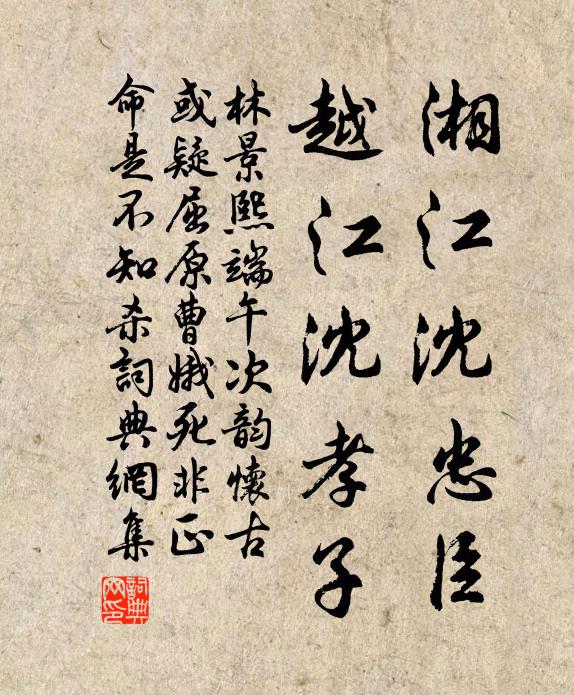 湘江沈忠臣
越江沈孝子
林景熙端午次韵懷古
或疑屈原曹娥死非正
命是不知杀詞典網集
詞典
网印